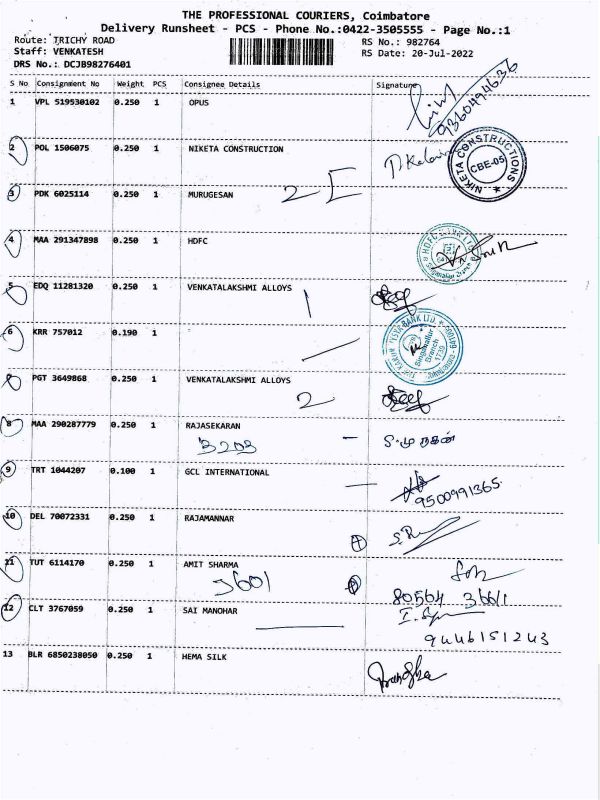 THE PROFESSIONAL COURIERS, Coimbatore
Delivery Runsheet - PCS - Phone No.:0422-3505555 - Page No.:1
Route: TRICHY ROAD
RS No.: 982764
Staff: VENKATESH
RS Date: 20-Jul-2022
DRS No.: DCJB98276401
S No Consignment No Weight PCS Consignee Details Signature
1 VPL 519530102 0.250 1 OPUS
9360494636
2 POL 1506075 0.250 1 NIKETA CONSTRUCTION
NIKETA CONSTRUCTIONS CBE-05
3 PDK 6025114 0.250 1 MURUGESAN 2
4 MAA 291347898 0.250 1 HDFC
5 EDQ 11281320 0.250 1 VENKATALAKSHMI ALLOYS 1
6 KRR 757012 0.190 1
Singanallur Branch 1739
PGT 3649868 0.250 1 VENKATALAKSHMI ALLOYS 2
8 MAA 290287779 0.250 1 RAJASEKARAN
3203
9 TRT 1044207 0.100 1 GCL INTERNATIONAL
9500991365
10 DEL 70072331 0.250 1 RAJAMANNAR
11 TUT 6114170 0.250 1 AMIT SHARMA
3601
80564 36611
12 CLT 3767059 0.250 1 SAI MANOHAR
9446151243
13 BLR 6850238050 0.250 1 HEMA SILK